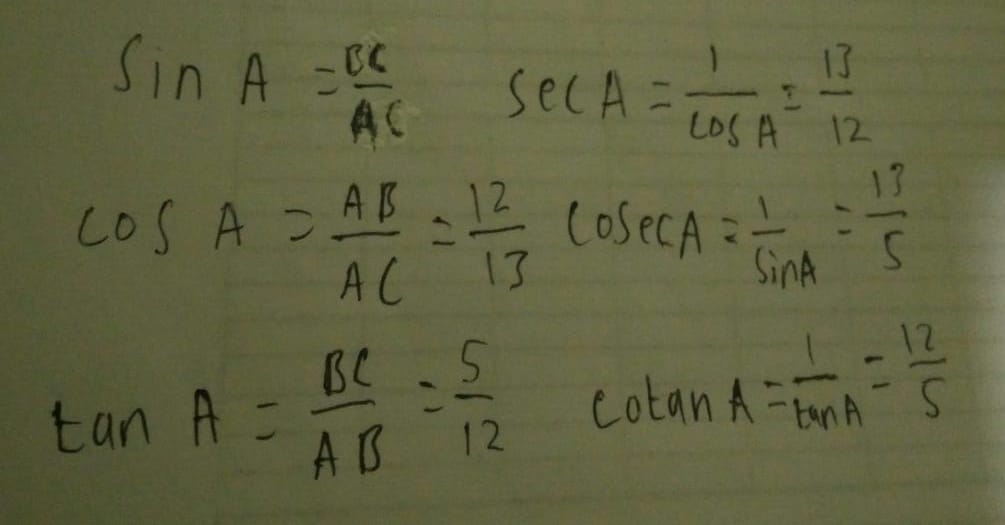 Sin A = BC/AC sec A = 1/cos A = 13/12
cos A = AB/AC = 12/13 cosec A = 1/sin A = 13/5
tan A = BC/AB = 5/12 cotan A = 1/tan A = 12/5